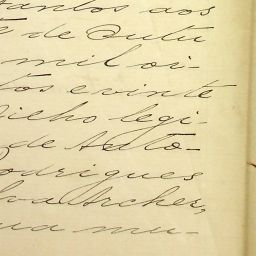 tantos aos
de Outu
mil oi-
tos e vinte
Filho legi-
de Anto-
Rodrigues
lva Archer,
ua mu-